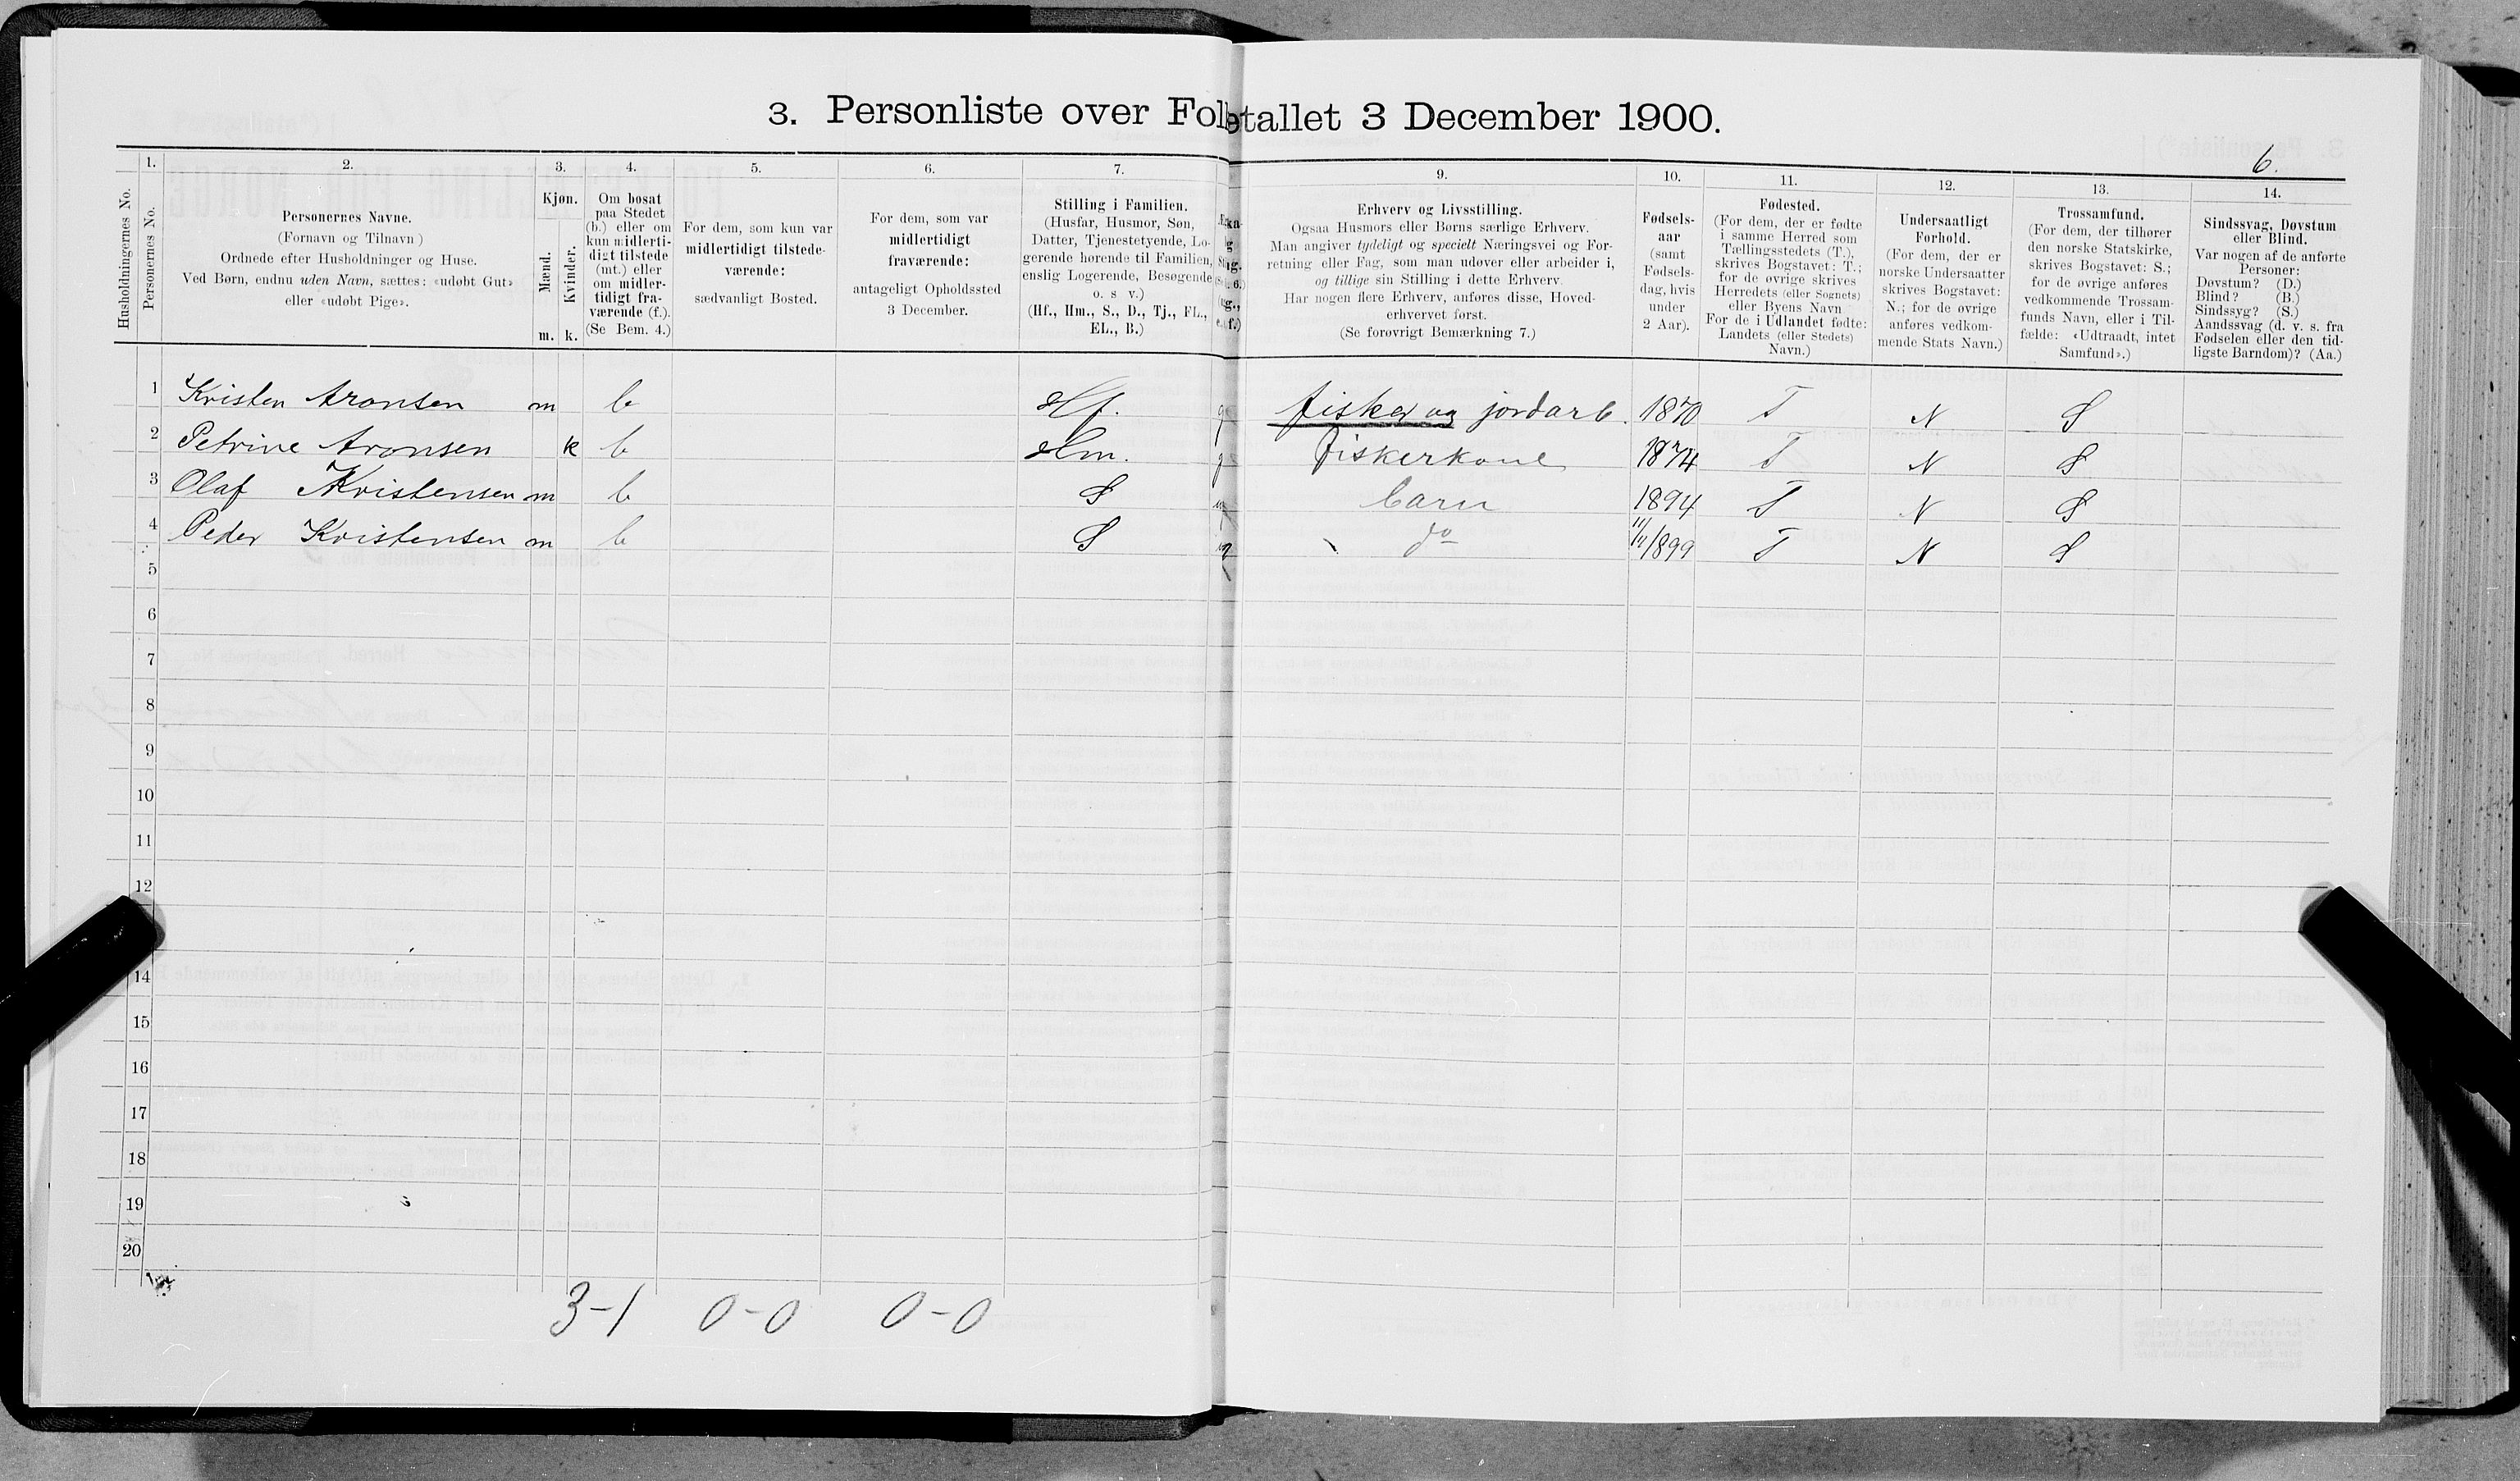 3. Personliste over Folketallet 3 December 1900.
6.
1. 2. 3. 4. 5. 6. 7. 9. 10. 11. 12. 13. 14.
Husholdningernes No.
Personernes No.
Personernes Navne.
(Fornavn og Tilnavn)
Ordnede efter Husholdninger og Huse.
Ved Børn, endnu uden Navn, sættes: «udøbt Gut»
eller «udøbt Pige».
Kjøn.
Mænd.
Kvinder.
m. k.
Om bosat
paa Stedet
(b.) eller om
kun midlerti-
digt tilstede
(mt.) eller
om midler-
tidigt fra-
værende (f.).
(Se Bem. 4.)
For dem, som kun var
midlertidigt tilstede-
værende:
sædvanligt Bosted.
For dem, som var
midlertidigt
fraværende:
antageligt Opholdssted
3 December.
Stilling i Familien.
(Husfar, Husmor, Søn,
Datter, Tjenestetyende, Lo-
gerende hørende til Familien,
enslig Logerende, Besøgende
o. s v.)
(Hf., Hm., S., D., Tj., FL.,
EL., B.)
Erhverv og Livsstilling.
Ogsaa Husmors eller Børns særlige Erhverv.
Man angiver tydeligt og specielt Næringsvei og For-
retning eller Fag, som man udøver eller arbeider i,
og tillige sin Stilling i dette Erhverv.
Har nogen flere Erhverv, anføres disse, Hoved-
erhvervet først.
(Se forøvrigt Bemærkning 7.)
Fødsels-
aar
(samt
Fødsels-
dag, hvis
under
2 Aar).
Fødested.
(For dem, der er fødte
i samme Herred som
Tællingsstedets (T.),
skrives Bogstavet: T.;
for de øvrige skrives
Herredets (eller Sognets)
eller Byens Navn
For de i Udlandet fødte:
Landets (eller Stedets)
Navn.)
Undersaatligt
Forhold.
(For dem, der er
norske Undersaatter
skrives Bogstavet:
N.; for de øvrige
anføres vedkom-
mende Stats Navn.)
Trossamfund.
(For dem, der tilhører
den norske Statskirke,
skrives Bogstavet: S.;
for de øvrige anføres
vedkommende Trossam-
funds Navn, eller i Til-
fælde: «Udtraadt, intet
Samfund».)
Sindssvag, Døvstum
eller Blind.
Var nogen af de anførte
Personer:
Døvstum? (D.)
Blind? (B.)
Sindssyg? (S.)
Aandssvag (d. v. s. fra
Fødselen eller den tid-
ligste Barndom)? (Aa.)
1 Kristen Aronsen m b Hf. g fisker og jordarb. 1870 T N S
2 Petrine Aronsen k b Hm. g fiskerkone 1874 T N S
3 Olaf Kristensen m b S barn 1894 T N S
4 Peder Kristensen m b S do 11/11 1899 T N S
5
6
7
8
9
10
11
12
14
15
16
17
18
19
20
3-1 0-0 0-0